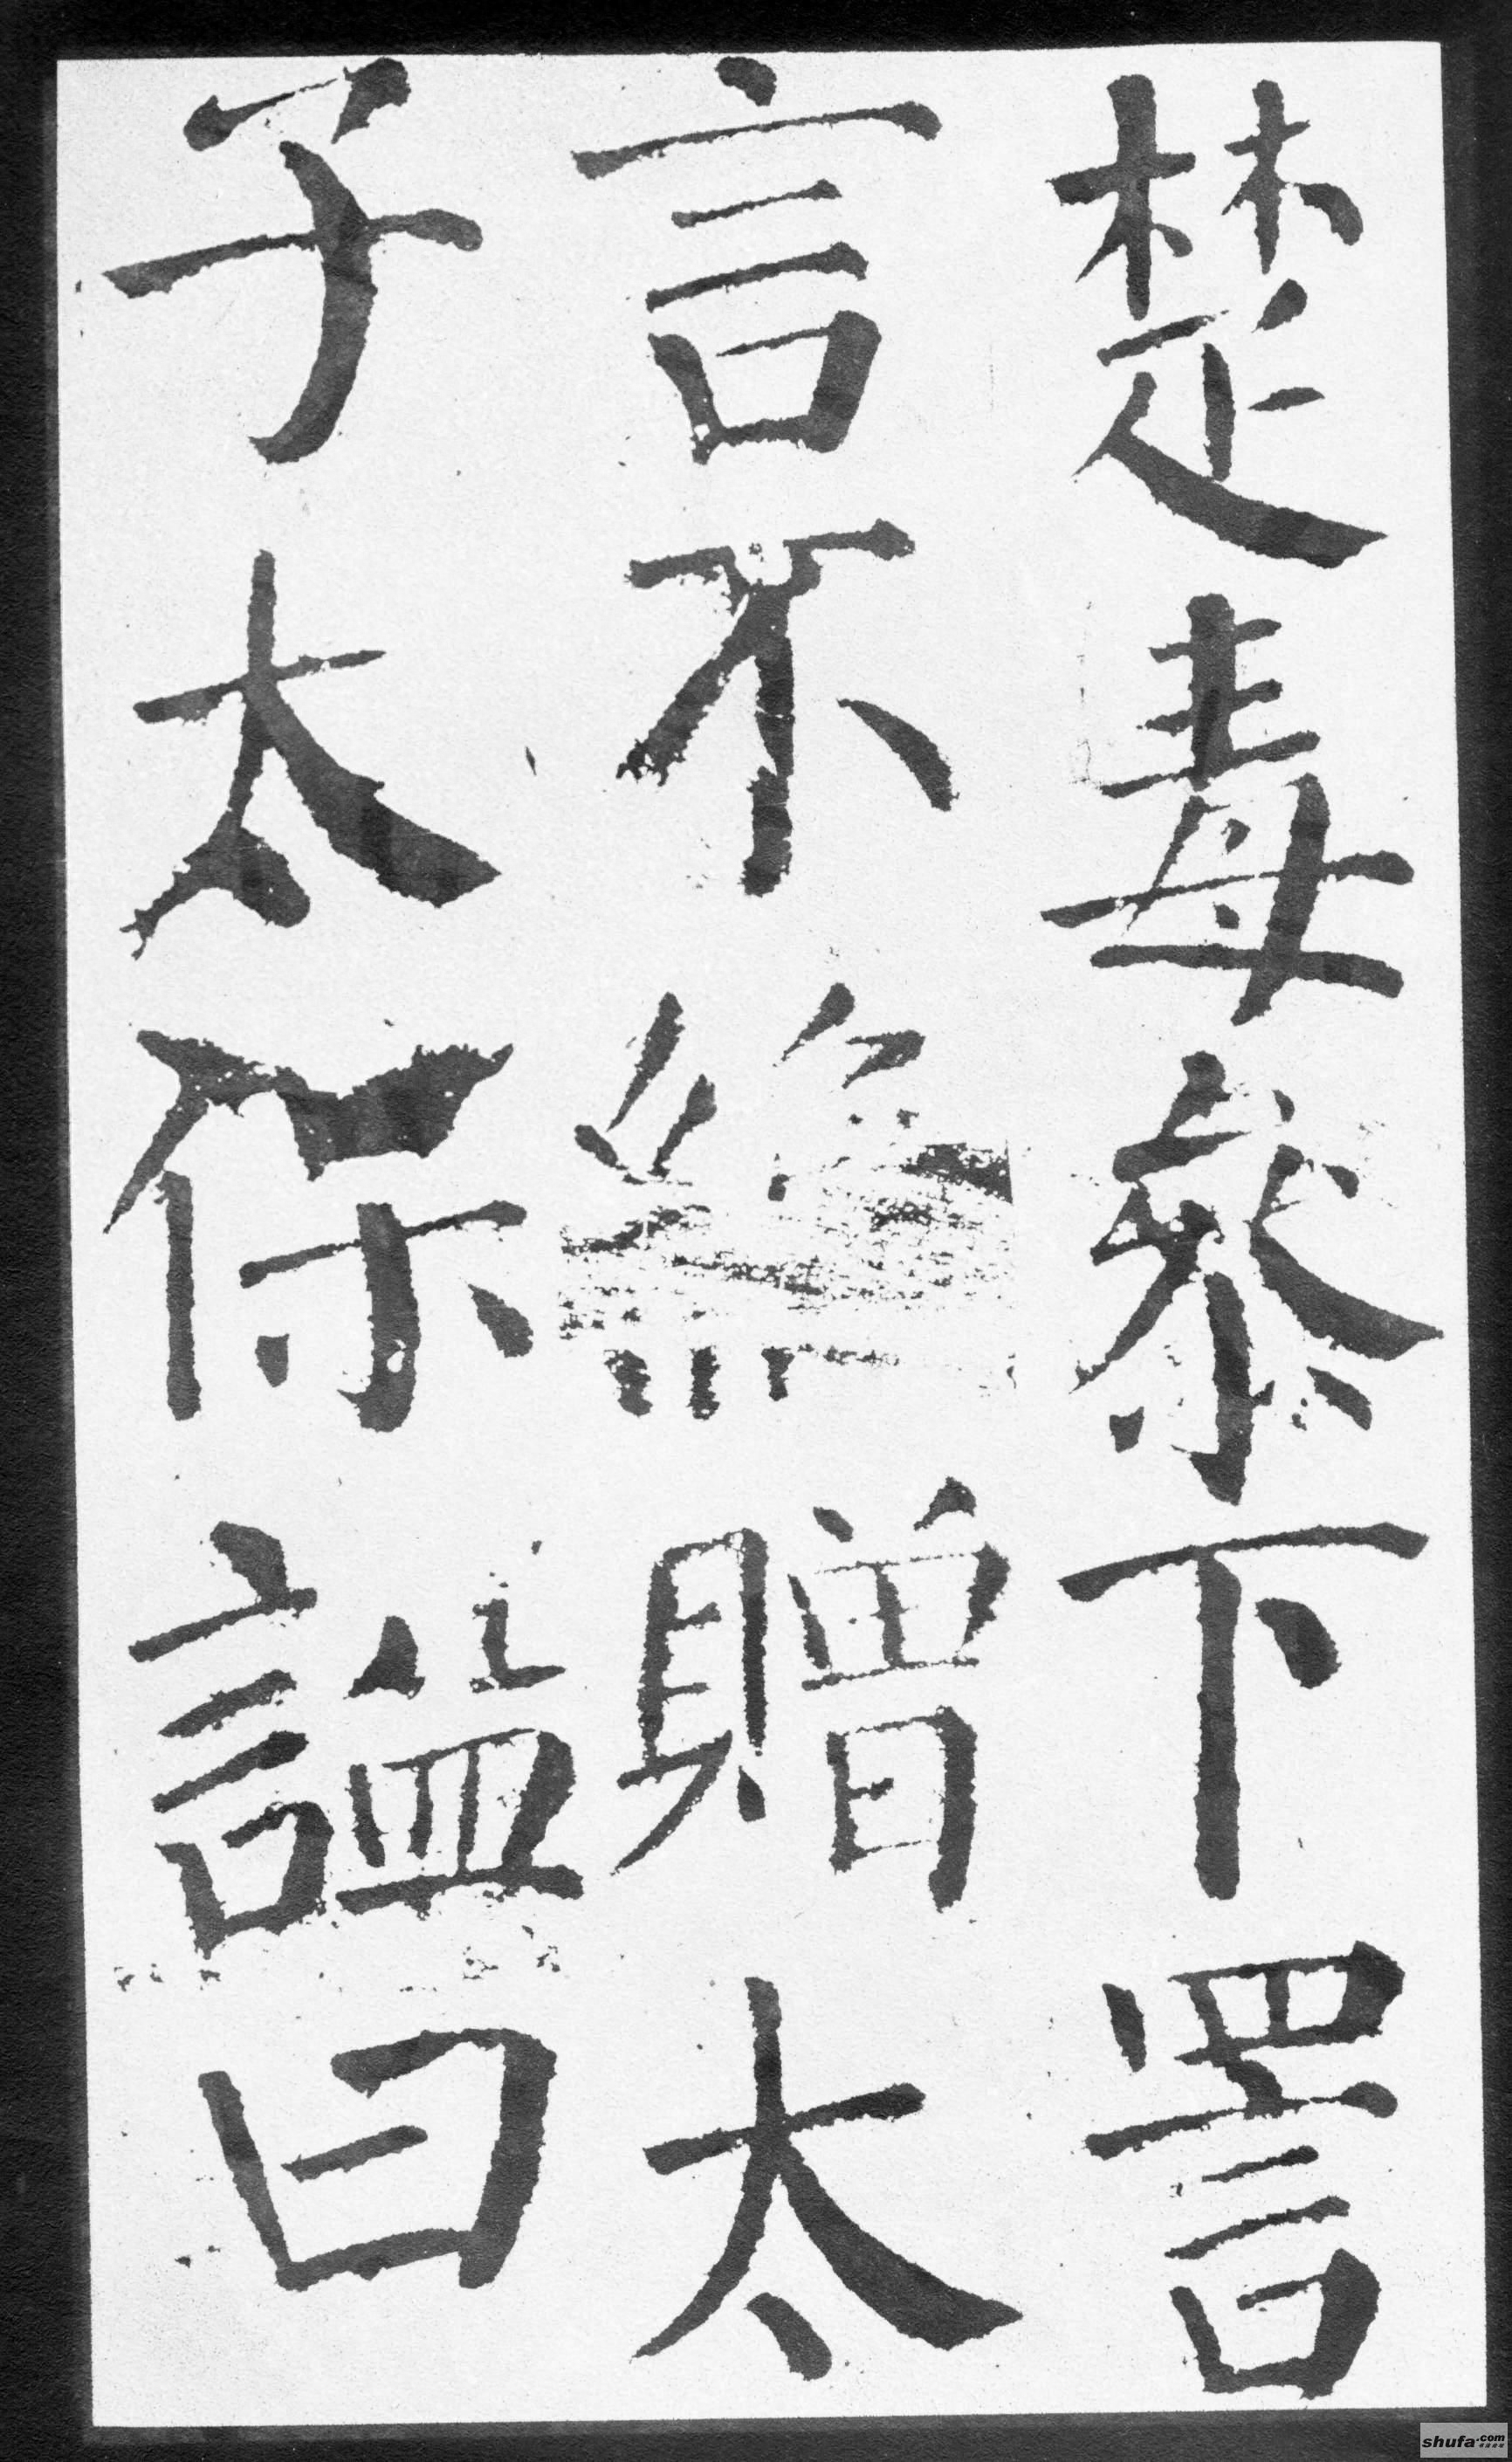 楚毒參下詈
言不絶贈太
子太保謚曰
shufa.com